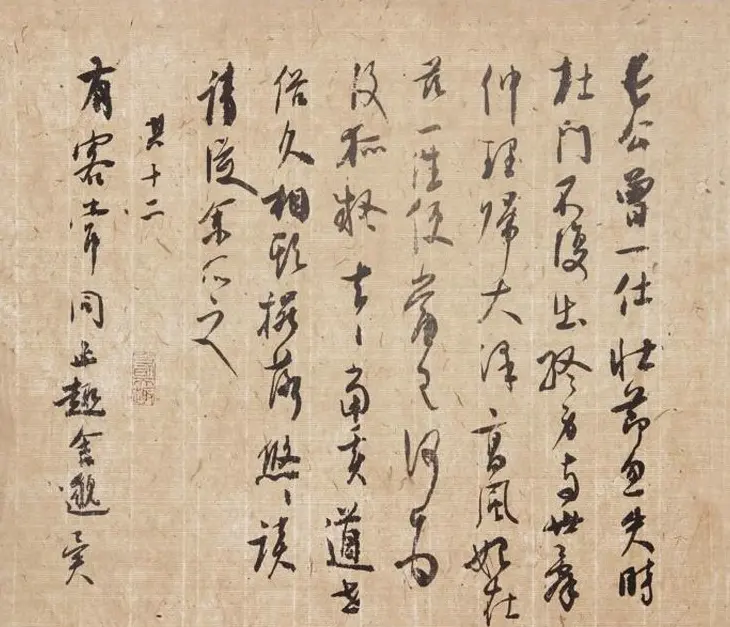 長公曾一仕壯節忽失時
杜門不復出終身與世辭
仲理歸大澤高風始在
茲一往便當已何為
復狐疑去〻當奚道世
俗久相欺擺落悠〻談
請從余所之
其十二
有客常同止趣舍邈異